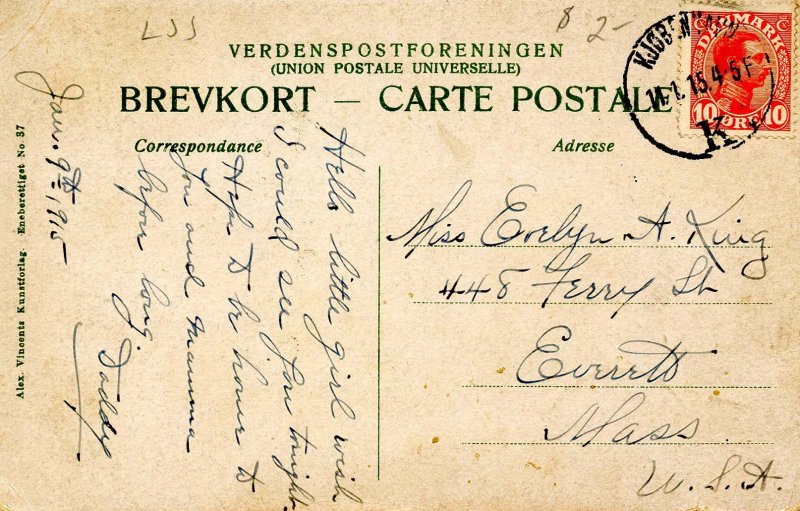 LSS
8 2-
VERDENSPOSTFORENINGEN
(UNION POSTALE UNIVERSELLE)
BREVKORT — CARTE POSTALE
Correspondance
Adresse
KJØBENHAVN
14.1.15.4-5F
K
DANMARK
10 ØRE 10
Jan. 9th, 1915
Hello little girl wish
I could see you tonight.
Hope to be home to
you and mamma
before long.
Daddy
Miss Evelyn A. King
448 Ferry St
Everett
Mass
U.S.A.
Alex. Vincents Kunstforlag. Eneberettiget No. 37